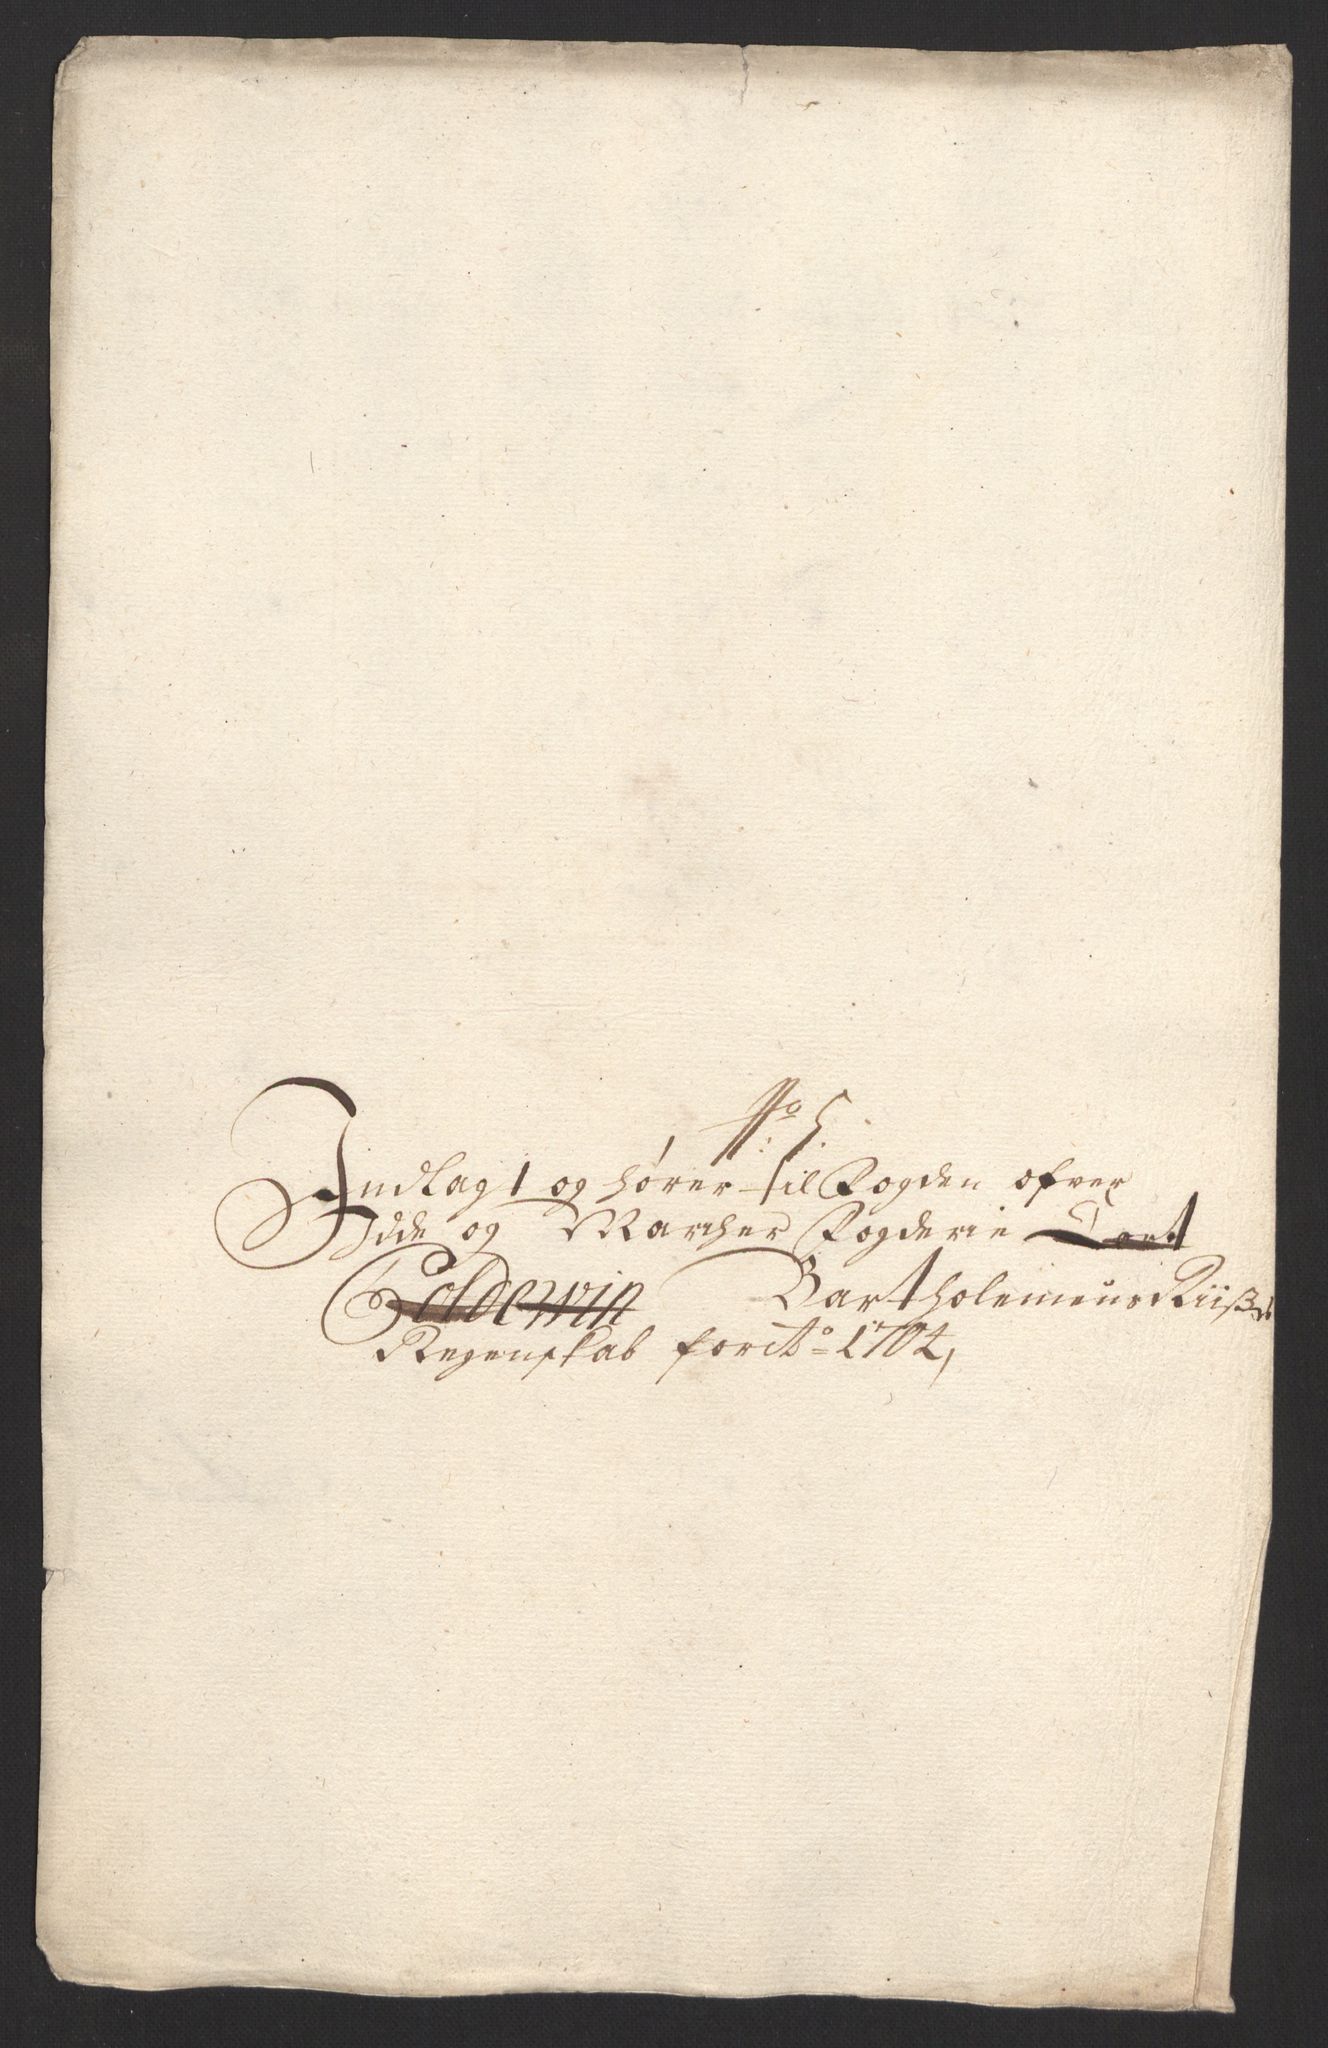 No 5.
Indlagt og hører til Fogden ofver
Idde og Marcher Fogderie Cort
Colderwin Bartholemeus Riiß
Regenskab for Ao 1704,